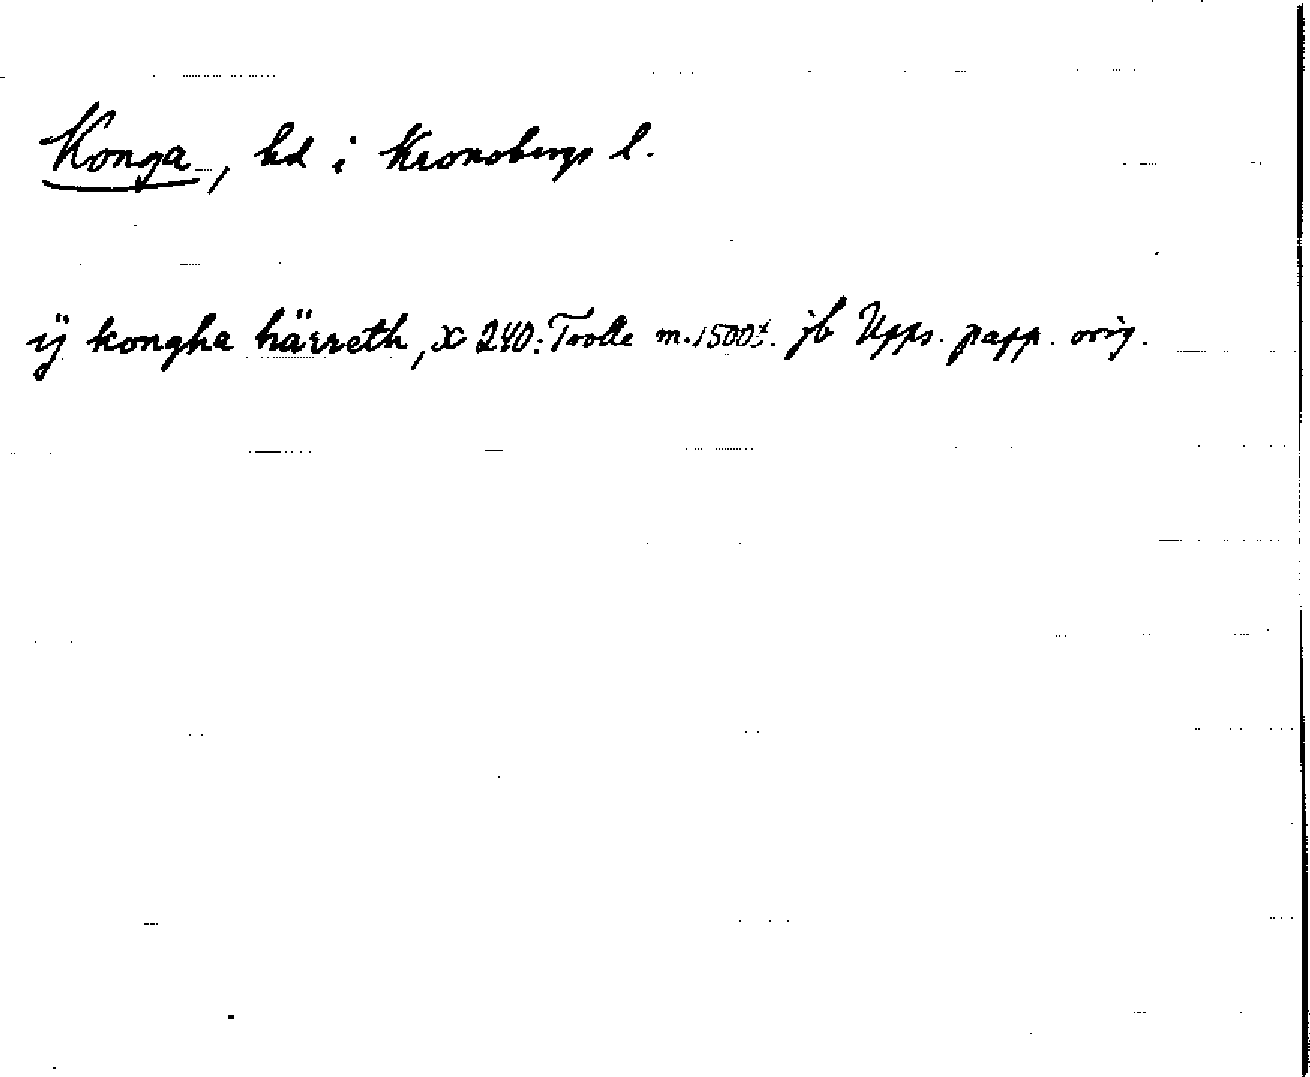 Konga, hd i Kronobergs l.
ij kongha härreth, X 240: Trolle m. 1500t. jb Upps. papp. orig.